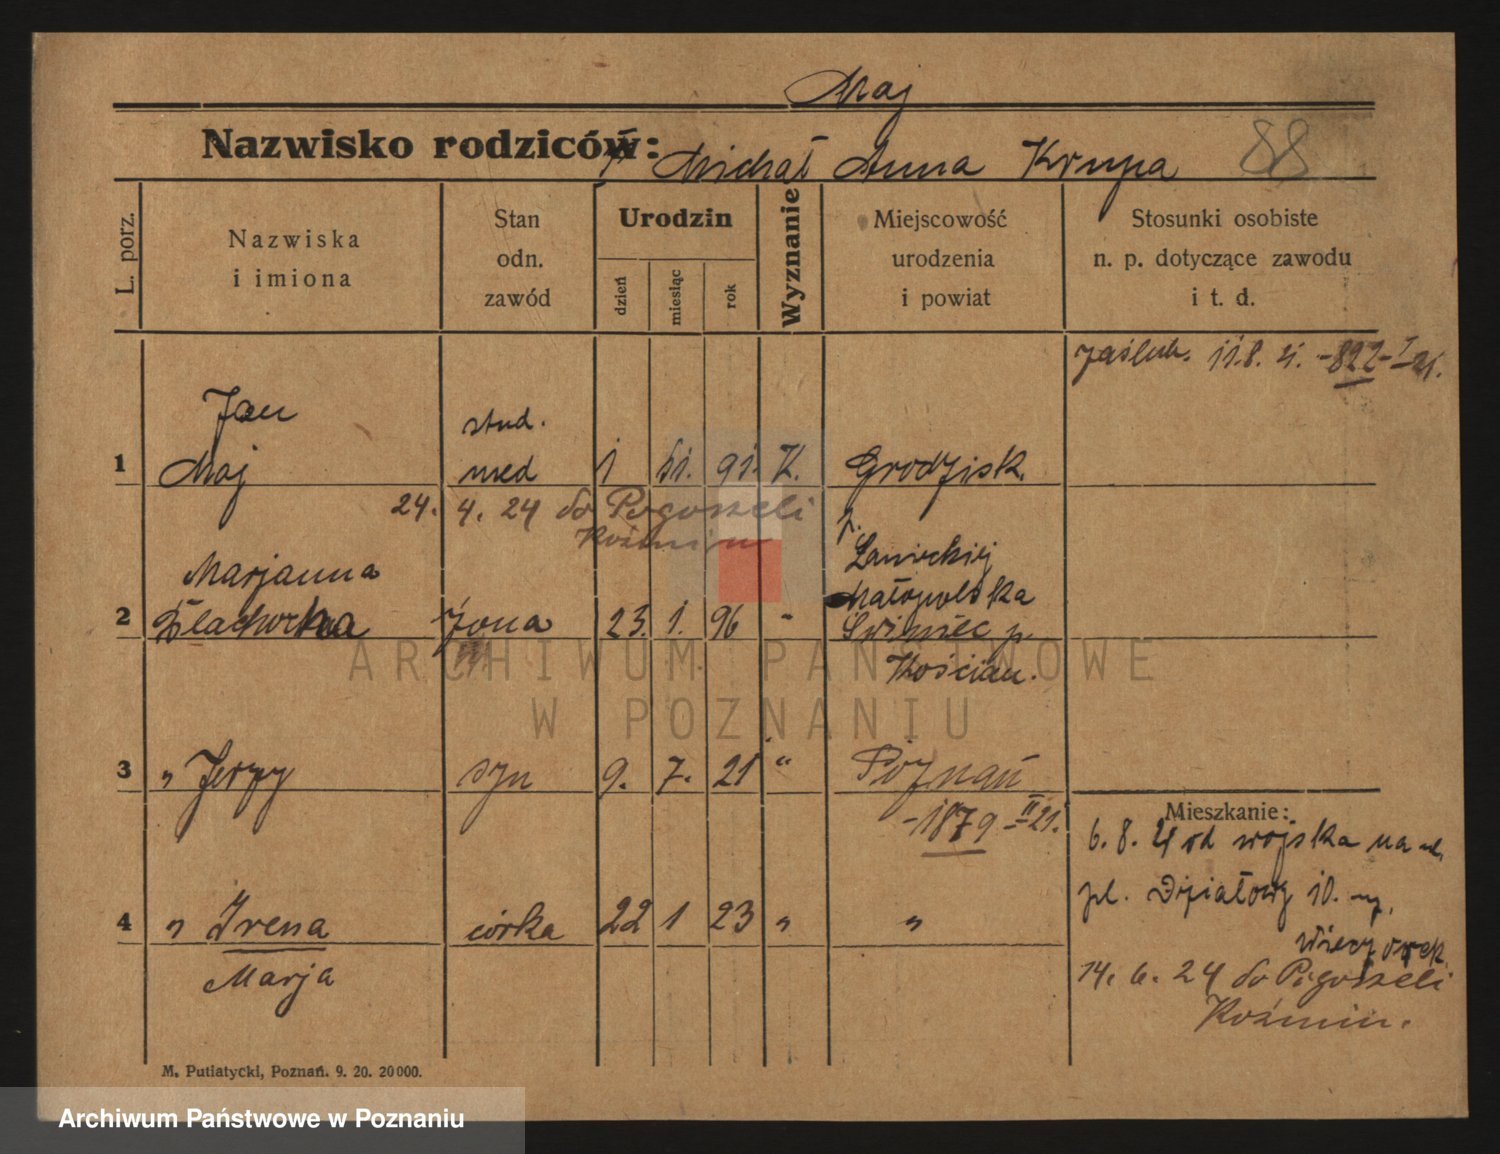 Maj
Nazwisko rodziców: Michał Anna Krupa 88
L. porz.
Nazwiska
i imiona
Stan
odn.
zawód
Urodzin
dzień
miesiąc
rok
Wyznanie
Miejscowość
urodzenia
i powiat
Stosunki osobiste
n. p. dotyczące zawodu
i t. d.
zaślub. 11.8. 21. -822-I-21.
Jan
stud.
1 Maj med 1 11. 91. K. Grodzisk
24. 4. 24 do Pogorzeli
Koźmin
p.
Łanieckiej
Marjanna
Małopolska
2 żona 23. 1. 96 - Świniec p.
Kościan.
3 " Jerzy syn 9. 7. 21 " Poznań
-1879-II21.
Mieszkanie:
6. 8. 21 od wojska na
pl. Działowy 10.
4 " Irena córka 22 1 23 " "
Marja
14. 6. 24 do Pogorzeli
Koźmin.
M. Putiatycki, Poznań. 9. 20. 20000.
ARCHIWUM PAŃSTWOWE
W POZNANIU
Archiwum Państwowe w Poznaniu